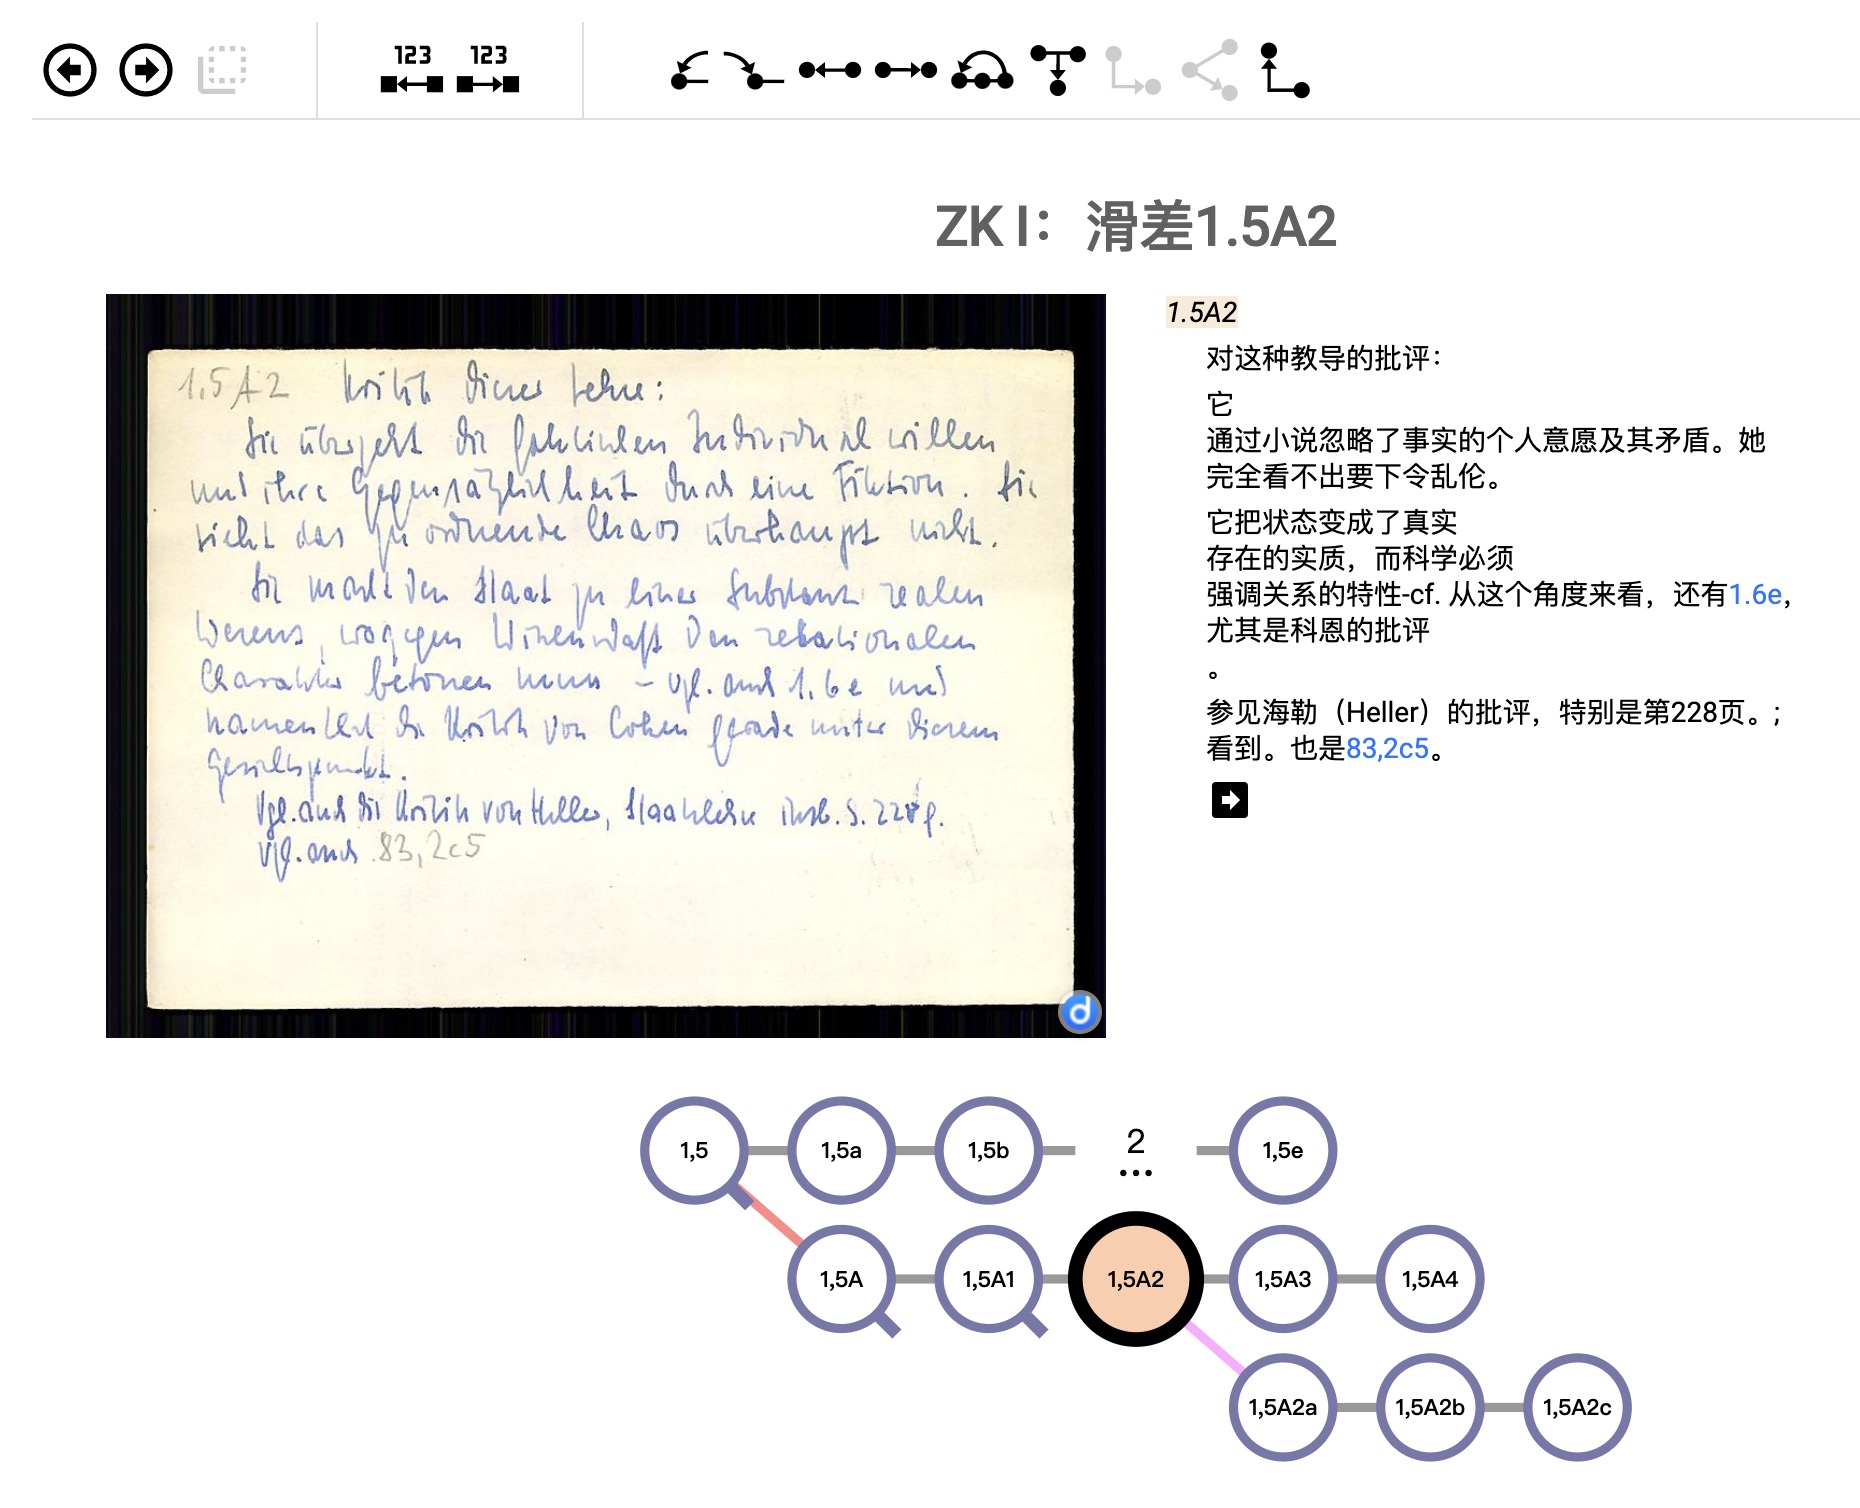 123 123
ZK I：滑差1.5A2
1.5A2 Kritik dieser Lehre:
Sie übergeht die faktischen Individualwillen
und ihre Gegensätzlichkeit durch eine Fiktion. Sie
sieht das zu ordnende Chaos überhaupt nicht.
Sie macht den Staat zu einer Substanz realen
Wesens, wogegen Wissenschaft den relationalen
Charakter betonen muss – vgl. auch 1.6e und
namentlich die Kritik von Cohen gerade unter diesem
Gesichtspunkt.
Vgl. auch die Kritik von Heller, Staatslehre insb. S. 228f.
Vgl. auch 83,2c5
d
1.5A2
对这种教导的批评：
它
通过小说忽略了事实的个人意愿及其矛盾。她
完全看不出要下令乱伦。
它把状态变成了真实
存在的实质，而科学必须
强调关系的特性-cf. 从这个角度来看，还有1.6e，
尤其是科恩的批评
。
参见海勒（Heller）的批评，特别是第228页。;
看到。也是83,2c5。
1,5 1,5a 1,5b 2 ... 1,5e
1,5A 1,5A1 1,5A2 1,5A3 1,5A4
1,5A2a 1,5A2b 1,5A2c